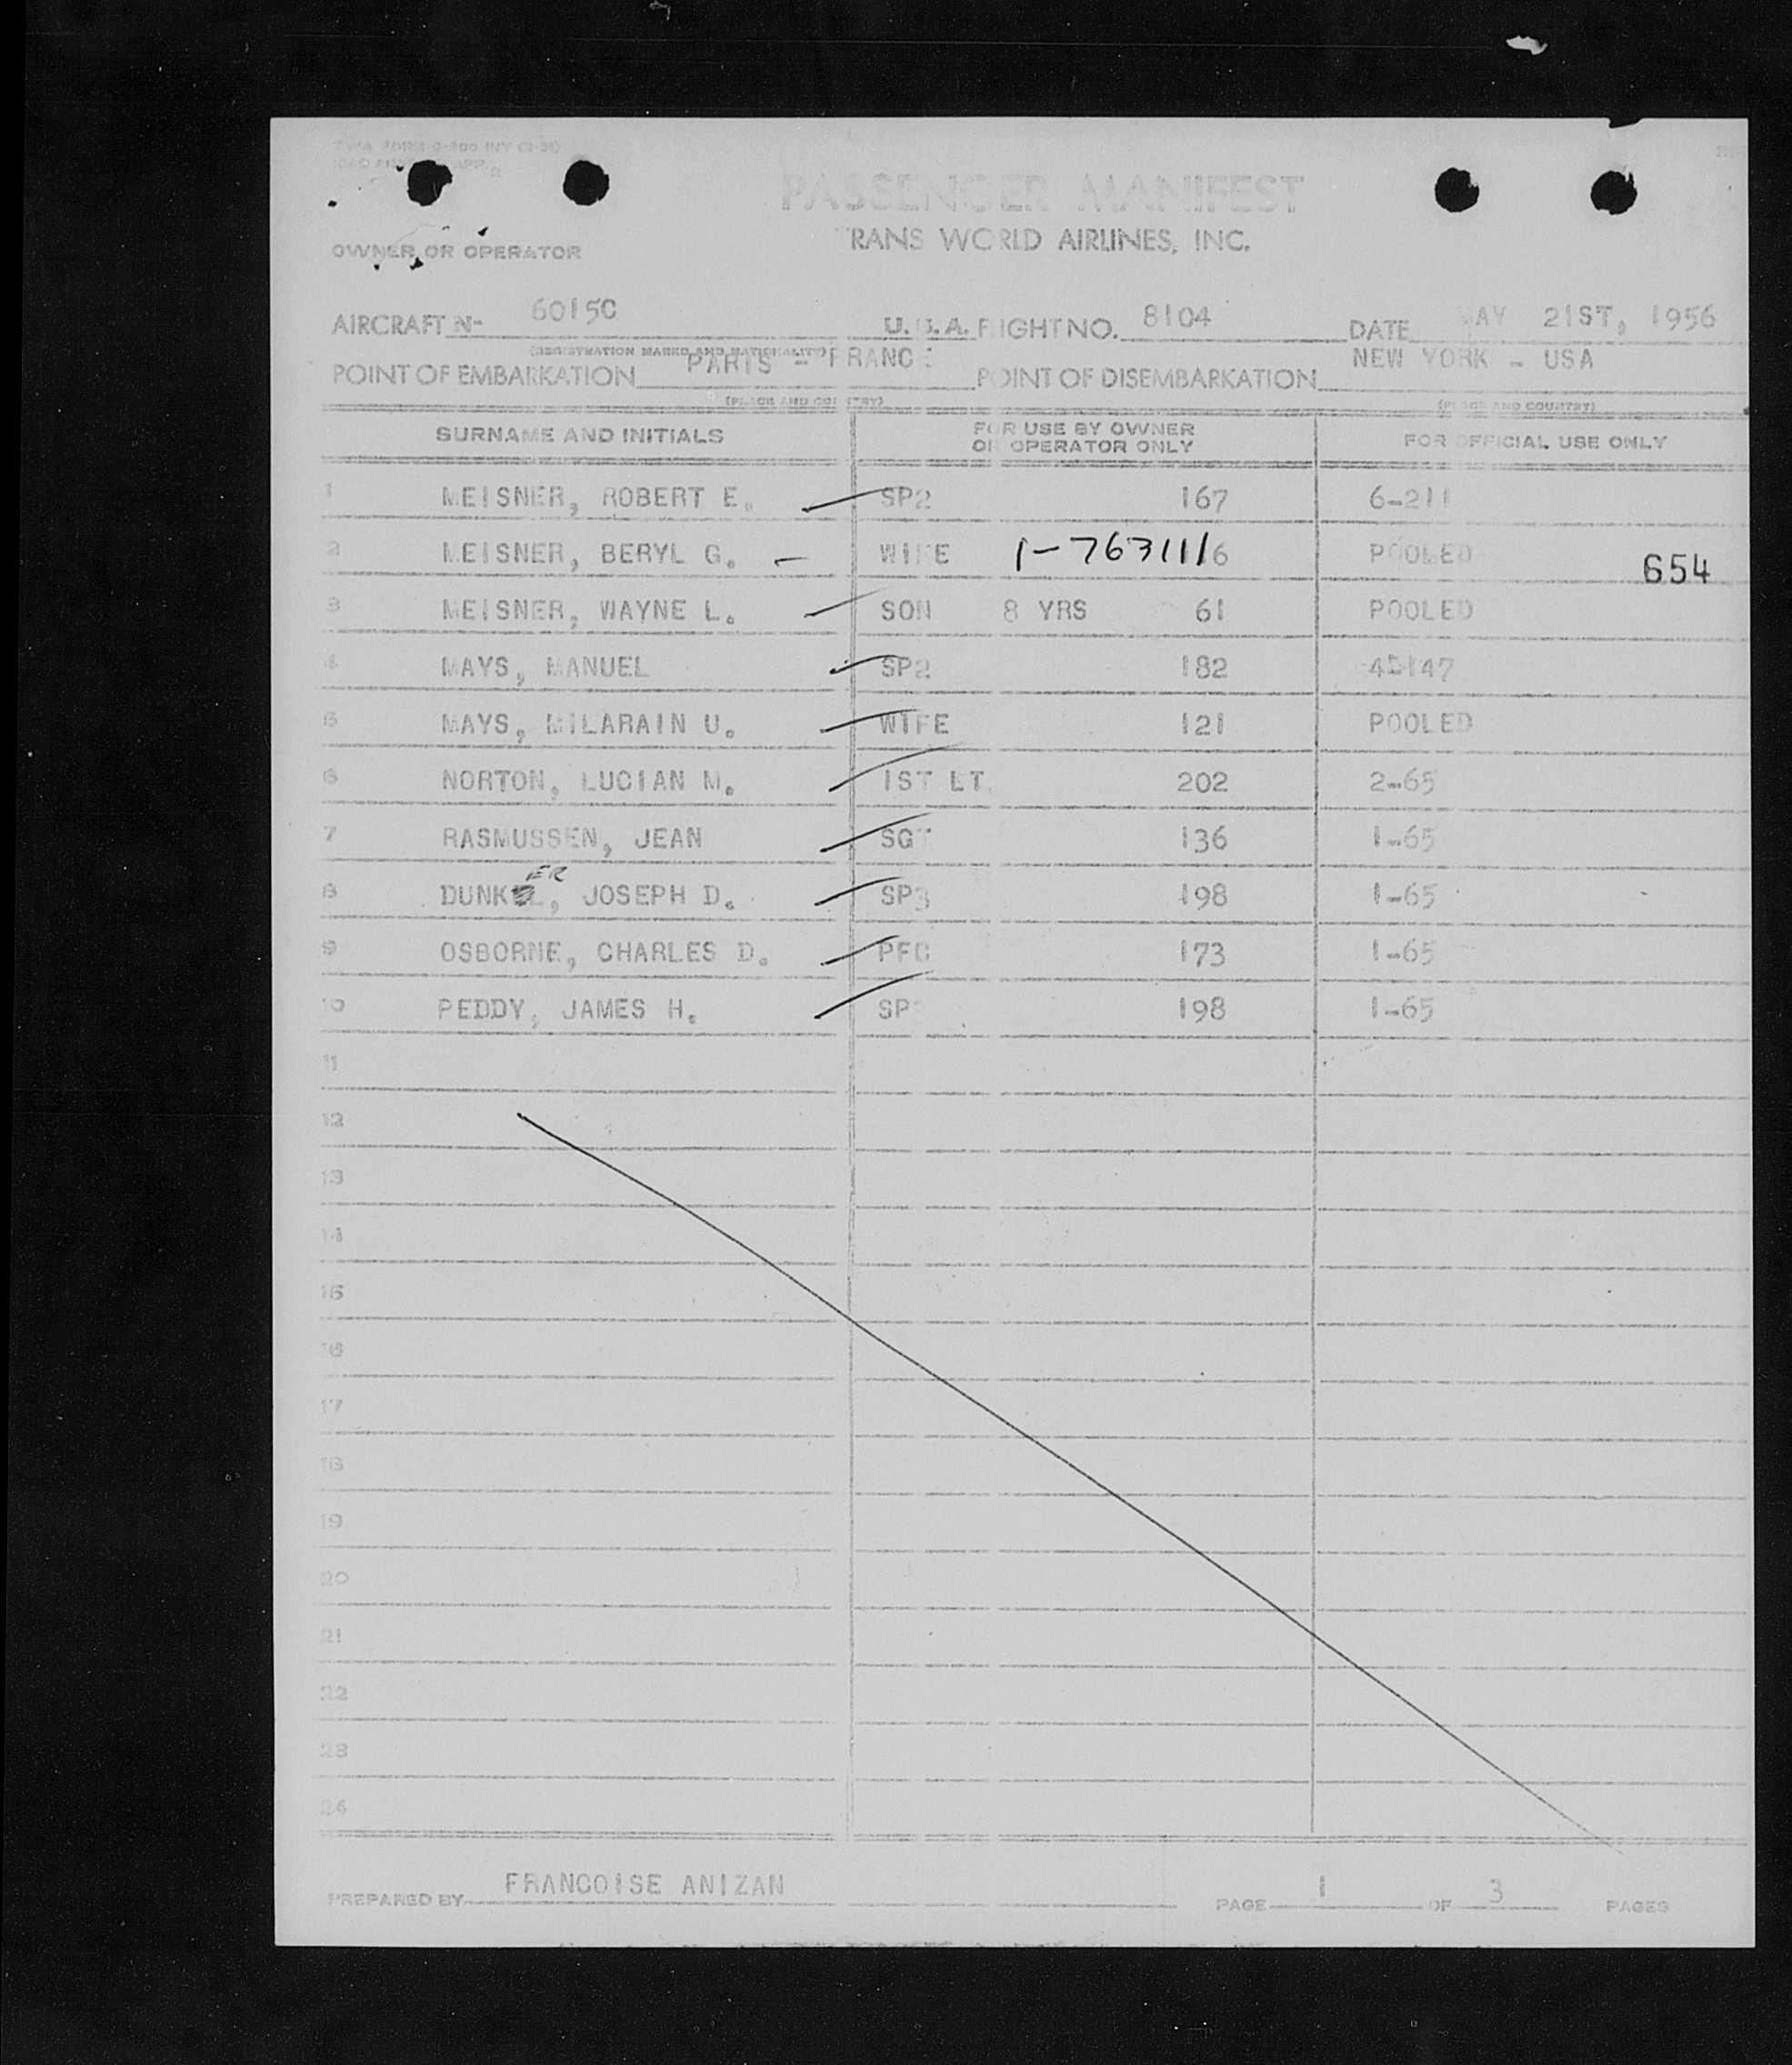 TWA FORM
PASSENGER MANIFEST
TRANS WORLD AIRLINES, INC.
OWNER OR OPERATOR
AIRCRAFT N- 6015C U.S.A. FLIGHT NO. 8104 DATE MAY 21ST, 1956
(REGISTRATION MARKS AND NATIONALITY)
POINT OF EMBARKATION PARIS - FRANCE POINT OF DISEMBARKATION NEW YORK - USA
(PLACE AND COUNTRY) (PLACE AND COUNTRY)
SURNAME AND INITIALS FOR USE BY OWNER OR OPERATOR ONLY FOR OFFICIAL USE ONLY
1 MEISNER, ROBERT E. SP2 167 6-211
2 MEISNER, BERYL G. WIFE 1-763111/6 POOLED 654
3 MEISNER, WAYNE L. SON 8 YRS 61 POOLED
4 MAYS, MANUEL SP2 182 4-147
5 MAYS, MILARAIN U. WIFE 121 POOLED
6 NORTON, LUCIAN M. 1ST LT 202 2-65
7 RASMUSSEN, JEAN SGT 136 1-65
8 DUNKER, JOSEPH D. SP3 198 1-65
9 OSBORNE, CHARLES D. PFC 173 1-65
10 PEDDY, JAMES H. SP 198 1-65
11
12
13
14
15
16
17
18
19
20
21
22
23
24
PREPARED BY FRANCOISE ANIZAN PAGE 1 OF 3 PAGES